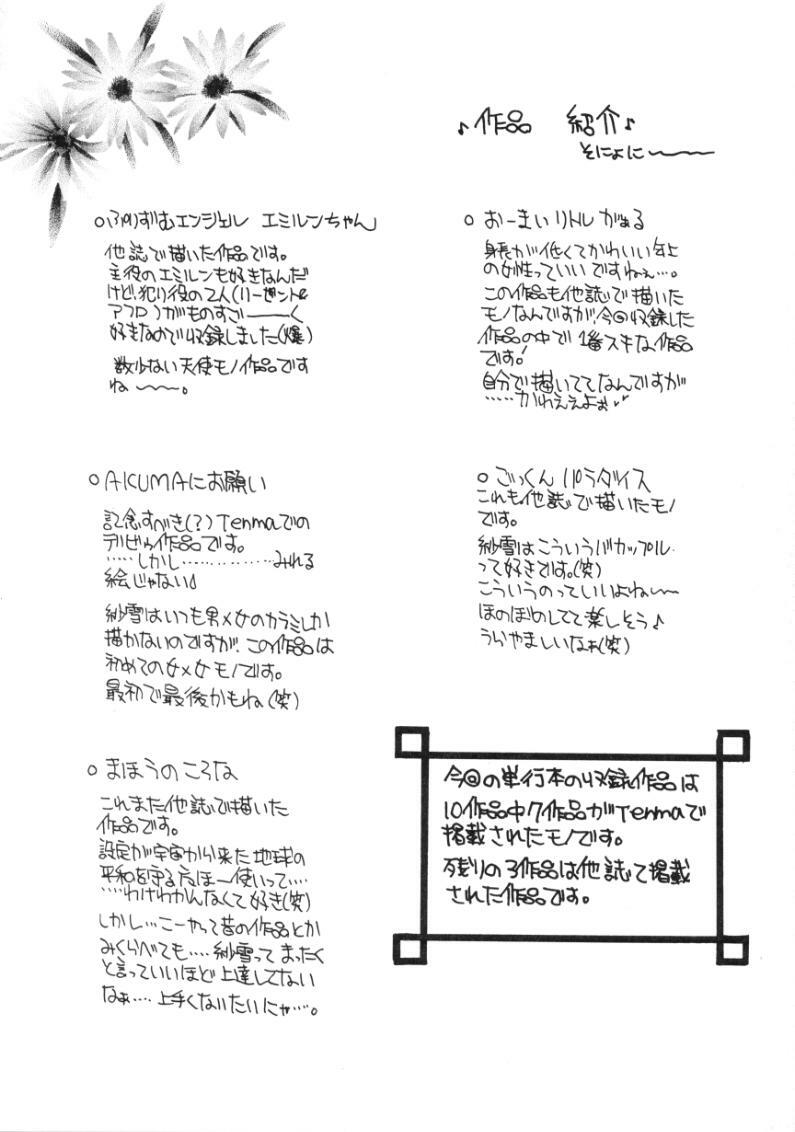 ♪作品 紹介♪
そにょに〜〜
○ぷりずむエンジェル エミルンちゃん
他誌で描いた作品です。
主役のエミルンも好きなんだ
けど、犯り役の2人(リーゼントと
アフロ)がものすご――く
好きなので収録しました(爆)
数少ない天使モノ作品です
ね〜〜。
○AKUMAにお願い
記念すべき(?)Tenmaでの
デビュウ作品です。
……しかし……………みれる
絵じゃない
紗雪はいつも男×女のカラミしか
描かないのですが、この作品は
初めての女×女モノです。
最初で最後かもね(笑)
○まほうのころな
これまた他誌で描いた
作品です。
設定が宇宙から来た地球の
平和を守る まほー使いって‥‥
‥‥わけわかんなくて好き(笑)
しかし…こーやって昔の作品とか
みくらべても‥‥紗雪って まったく
と言っていいほど上達してない
なぁ‥‥上手くないたいにゃ‥‥。
○おーまいリトルがぁる
身長が低くてかわいい年上
の女性っていいですねぇ…。
この作品も他誌で描いた
モノなんですが、今回収録した
作品の中で1番スキな作品
です!
自分で描いててなんですが
……かわええよぉ
○ごっくんパラダイス
これも他誌で描いたモノ
です。
紗雪はこういうバカップル
って好きです。(笑)
こういうのっていいよね〜
ほのぼのしてて楽しそう♪
うらやましいなぁ(笑)
今回の単行本の収録作品は
10作品中7作品がTenmaで
掲載されたモノです。
残りの3作品は他誌で掲載
された作品です。